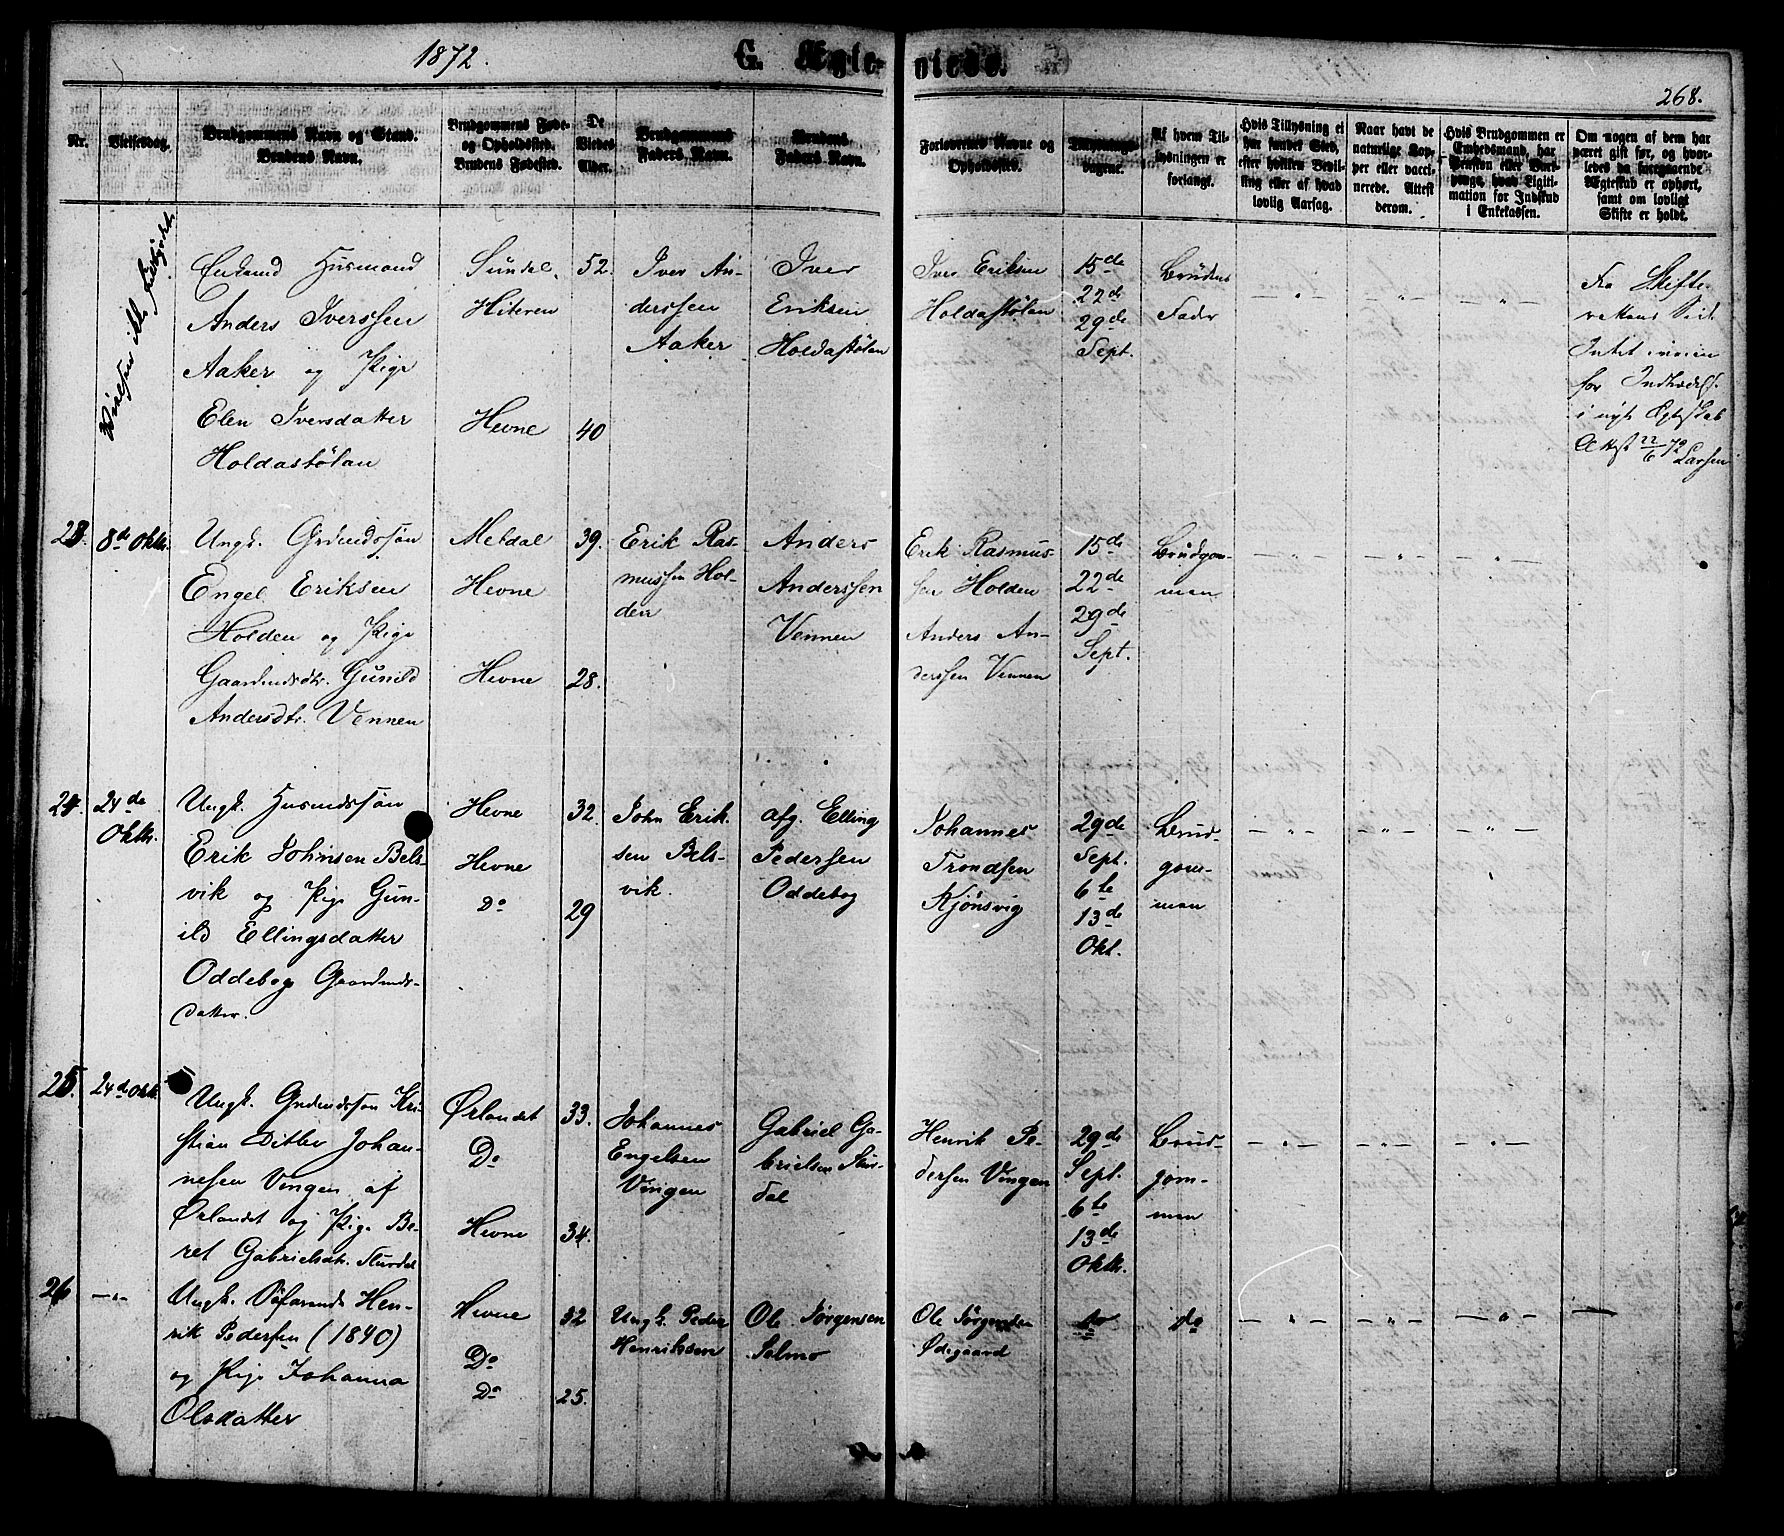 1872.
G. Ægte-
viede.
268.
Nr.
Vielsesdag.
Brudgommens Navn og Stand.
Brudens Navn.
Brudgommens Føde-
og Opholdssted.
Brudens Fødested.
De
Viedes
Alder.
Brudgommens
Faders Navn.
Brudens
Faders Navn.
Forlovernes Navne og
Opholdssted.
Tillysnings-
dagene.
Af hvem Til-
lysningen er
forlangt.
Hvis Tillysning ei
har fundet Sted,
efter hvilken Bevil-
ling eller af hvad
lovlig Aarsag.
Naar havt de
naturlige Kop-
per eller vacci-
nerede. Attest
derom.
Hvis Brudgommen er
Embedsmand, har
Pension eller Vart-
penge, hvad Ligiti-
mation for Indskud
i Enkekassen.
Om nogen af dem har
været gift før, og hvor-
ledes da foregaaende
Ægteskab er ophørt,
samt om lovligt
Skifte er holdt.
Vielsen ikke fuldbyrdet.
Enkemd Husmand
Anders Iverssen
Aaker og Pige
Elen Iversdatter
Holdastølan
Sundal
Hiteren
Hevne
52.
40
Iver An-
derssen
Aaker
Iver
Eriksen
Holdastølan
Iver Eriksen
Holdastølan
15de
22de
29de
Sept.
Brudens
Fader
— " —
— " —
— " —
Fra Skifte-
rettens Side
Intet iveien
for Indtrædelse
i nyt Ægteskab
Attest 22/6 72
Larsen
23.
8de Oktb.
Ungk. Grdmdssøn
Engel Eriksen
Holden og Pige
Gaardmdsdtr. Gunild
Andersdtr. Vennen
Meldal
Hevne
Hevne
39.
28.
Erik Ras-
mussen Hol-
den
Anders
Anderssen
Vennen
Erik Rasmus-
sen Holden
Anders An-
derssen Vennen
15de
22de
29de
Sept.
Brudgom-
men
— " —
— " —
— " —
24.
24de
Oktb.
Ungk. Husmdssøn
Erik Johnsen Bels-
vik og Pige Gun-
ild Ellingsdatter
Oddebog Gaardmds-
datter.
Hevne
Hevne
Do
32.
29
John Erik-
sen Bels-
vik.
afg. Elling
Pedersen
Oddebog
Johannes
Trondsen
Kjønsvig
29de
Sept.
6te
13de
Okt.
Brud-
gom-
men
— " —
— " —
— " —
25.
24de Oktb.
Ungk. Grdmdssøn Kri-
stian Ditlev Johan-
nesen Vingen af
Ørlandet og Pige Be-
ret Gabrielsdtr. Sturdal
Ørlandet
Do
Hevne
33.
34.
Johannes
Engelsen
Vingen
Gabriel Ga-
brielsen Stur-
dal
Henrik Pe-
dersen Vingen
29de
Sept.
6te
13de
Oktb.
Brud-
gom-
men
— " —
— " —
— " —
26
— " —
Ungk. Søfarende Hen-
rik Pedersen (1840)
og Pige Johanna
Olsdatter
Hevne
Do
Do
32
25.
Ungk. Peder
Henriksen
Ole Jørgensen
Selmo
Ole Jørgensen
Ødegaard
do
do
— " —
— " —
— " —
—